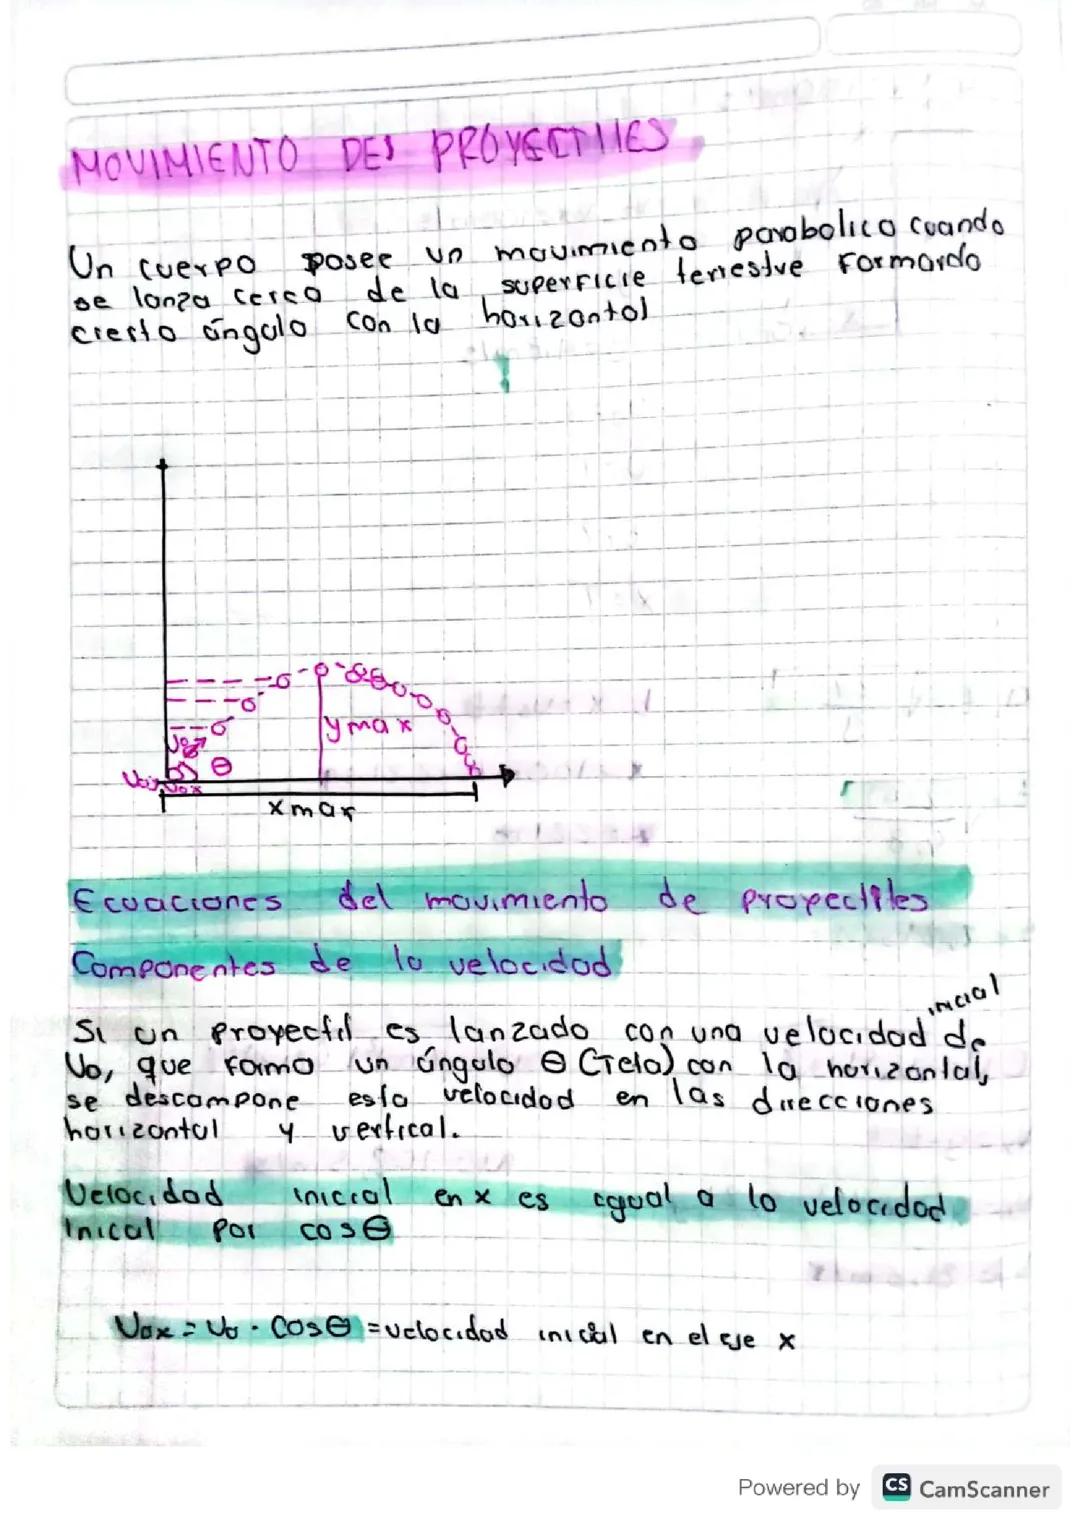 MOVIMIENTO DEL PROYECTILES
Un cuerpo posee un movimiento parabolico cuando
se lanza cerca de la superficie terrestre formando
cierto ángulo con la horizontal
ymax
Vo
θ
Vox
xmax
Ecuaciones del movimiento de proyectiles
Componentes de la velocidad
inicial
Si un proyectil es lanzado con una velocidad de
Vo, que forma un ángulo θ (Teta) con la horizontal,
se descompone esta velocidad en las direcciones
horizontal y vertical.
Velocidad inicial en x es igual a la velocidad
inical por cosθ
Vox = Vo · Cosθ = velocidad inicial en el eje x
Powered by CS CamScanner